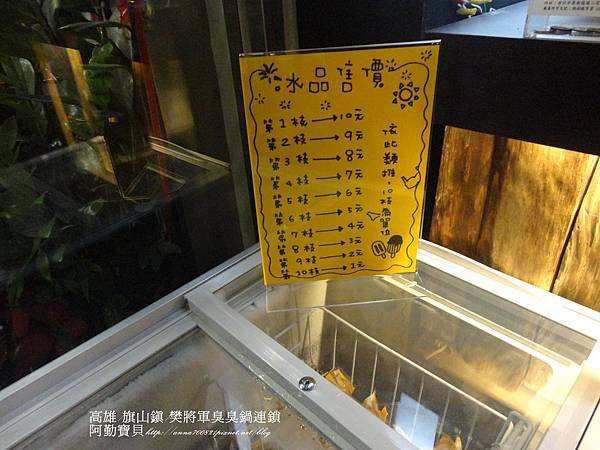 冰品售價
第1枝→10元
第2枝→9元
第3枝→8元
第4枝→7元
第5枝→6元
第6枝→5元
第7枝→4元
第8枝→3元
第9枝→2元
第10枝→1元
依此類推,10枝為單位
高雄 旗山鎮 樊將軍臭臭鍋連鎖
阿勤寶貝 http://anna700821.pixnet.net/blog